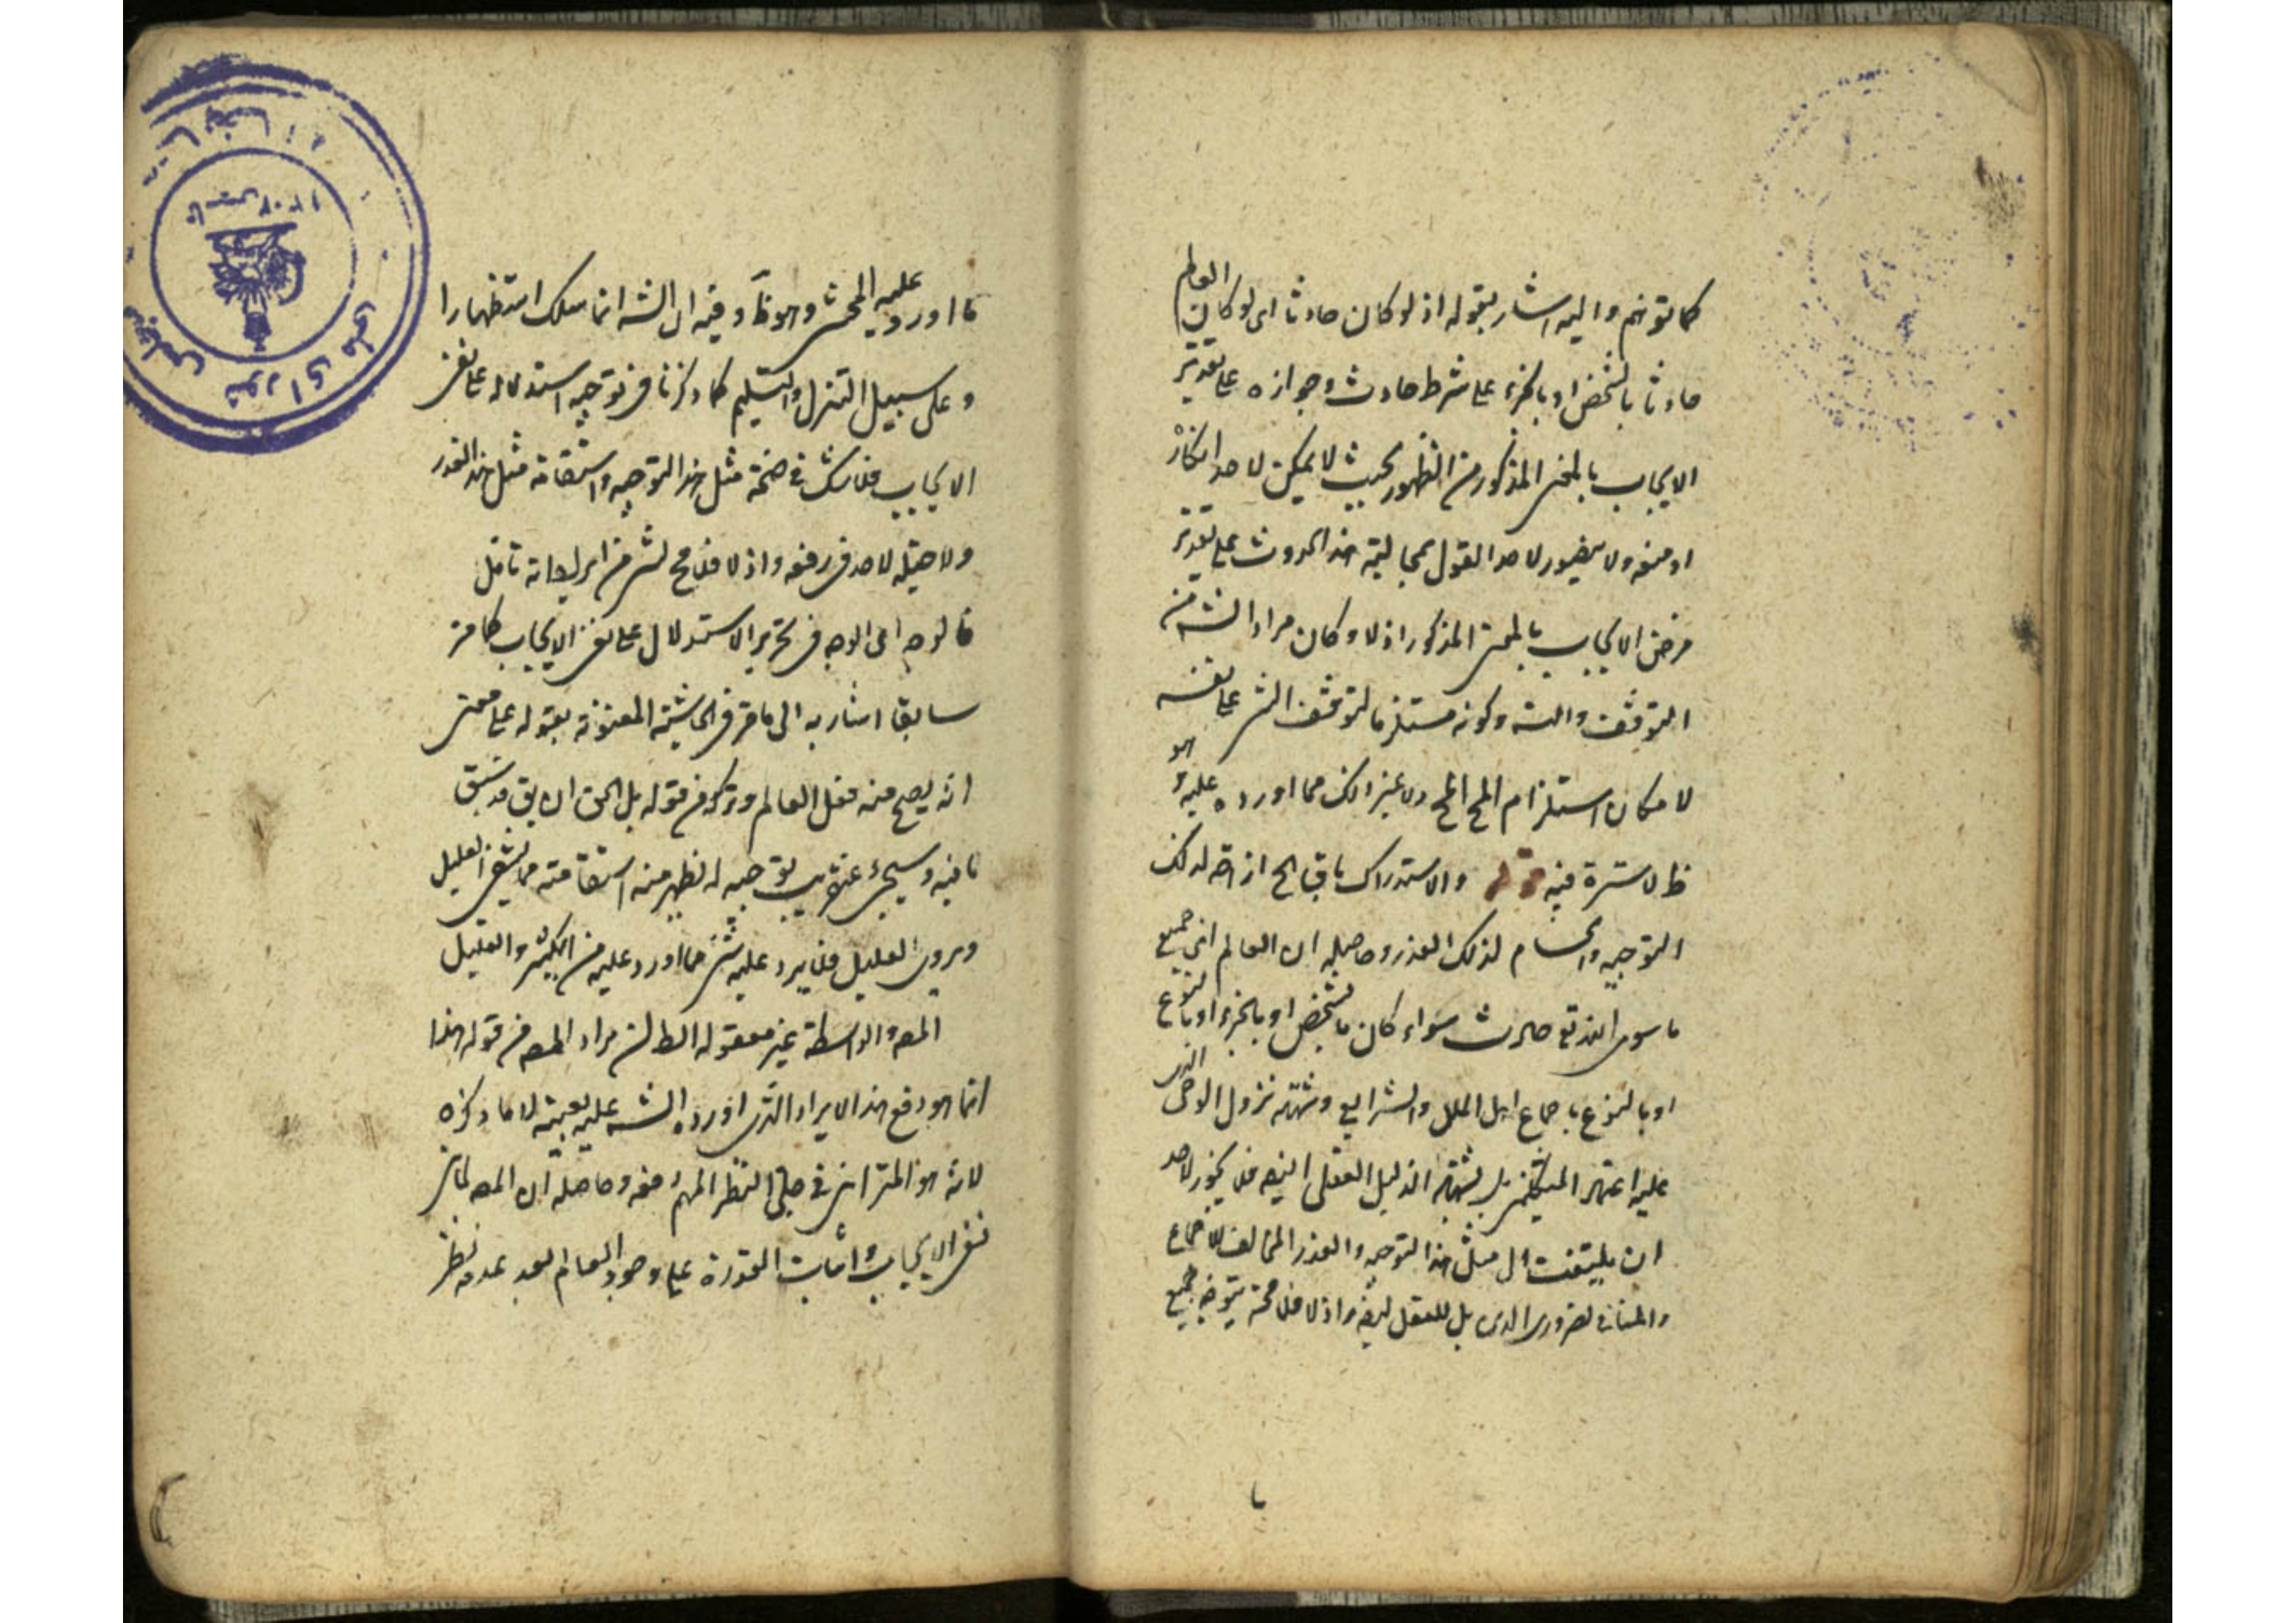 كما توهم واليه اشار بقوله اذ لو كان حادثا اى لو كان العالم
حادثا بالشخص او بالجزء على شرط حادث وجوازه على تقدير
الايجاب بالمعنى المذكور من الظهور بحيث لا يمكن لاحد انكاره
او منعه ولا يتصور لاحد القول بمحالية هذا الحدوث على تقدير
فرض الايجاب بالمعنى المذكور اذ لا وكان مراد الشه من
التوقف والشه وكونه مستلزما لتوقف الشئ على نفسه
لامكان استلزام المح المح ولا غير ذلك مما اورده عليه وهو
ظ لا سترة فيه قوله والاستدراك باق الخ ازاحة لذلك
التوجيه وانحسام لذلك العذر وحاصله ان العالم اى جميع
ما سوى الله تع حادث سواء كان بالشخص او بالجزء او بالنوع
او بالنوع باجماع اهل الملل والشرايع وشهد نزول الوحى الذى
عليه اعتمد المتكلمين بل يشهد الدليل العقلى ايضه فلا يجوز لاحد
ان يلتفت الى مثل هذا التوجيه والعذر المخالف للاجماع
والمنافى لضرورى الدين بل للعقل ايضه واذ لا فلا محة يتوجه جميع
ما اورد عليه المحشى وهو ظ وفيه ان الشه انما سلك استظهارا
وعلى سبيل التنزل والتسليم كما ذكرنا فى توجيه استدلاله على نفى
الايجاب فلا شك فى صحة مثل هذا التوجيه واستقامة مثل هذا العذر
ولا حيلة لاحد فى رفعه واذ لا فلا مح لشئ من ايراداته تامل
فالوجه اى الوجه فى تحرير الاستدلال على نفى الايجاب كما مر
سابقا اشار به الى ما مر فى الحاشية المعنونة بقوله على معنى
انه يصح منه فعل العالم وتركه من قوله بل الحق ان يق قد سبق
ما فيه وسيجئ عنقريب توجيه له يظهر منه استقامته مما يشفى العليل
ويروى الغليل فلا يرد عليه شئ مما اورد عليه من الكثير والقليل
المصه والواسطة غير معقولة الظ ان مراد المصه من قوله هذا
انما هو دفع هذا الايراد الذى اورده الشه عليه بعينه لا ما ذكره
لانه هو المترائى فى جلى النظر المهم دفعه وحاصله ان المصه لما
نفى الايجاب واثبات القدرة على وجود العالم بعد عدمه نظر